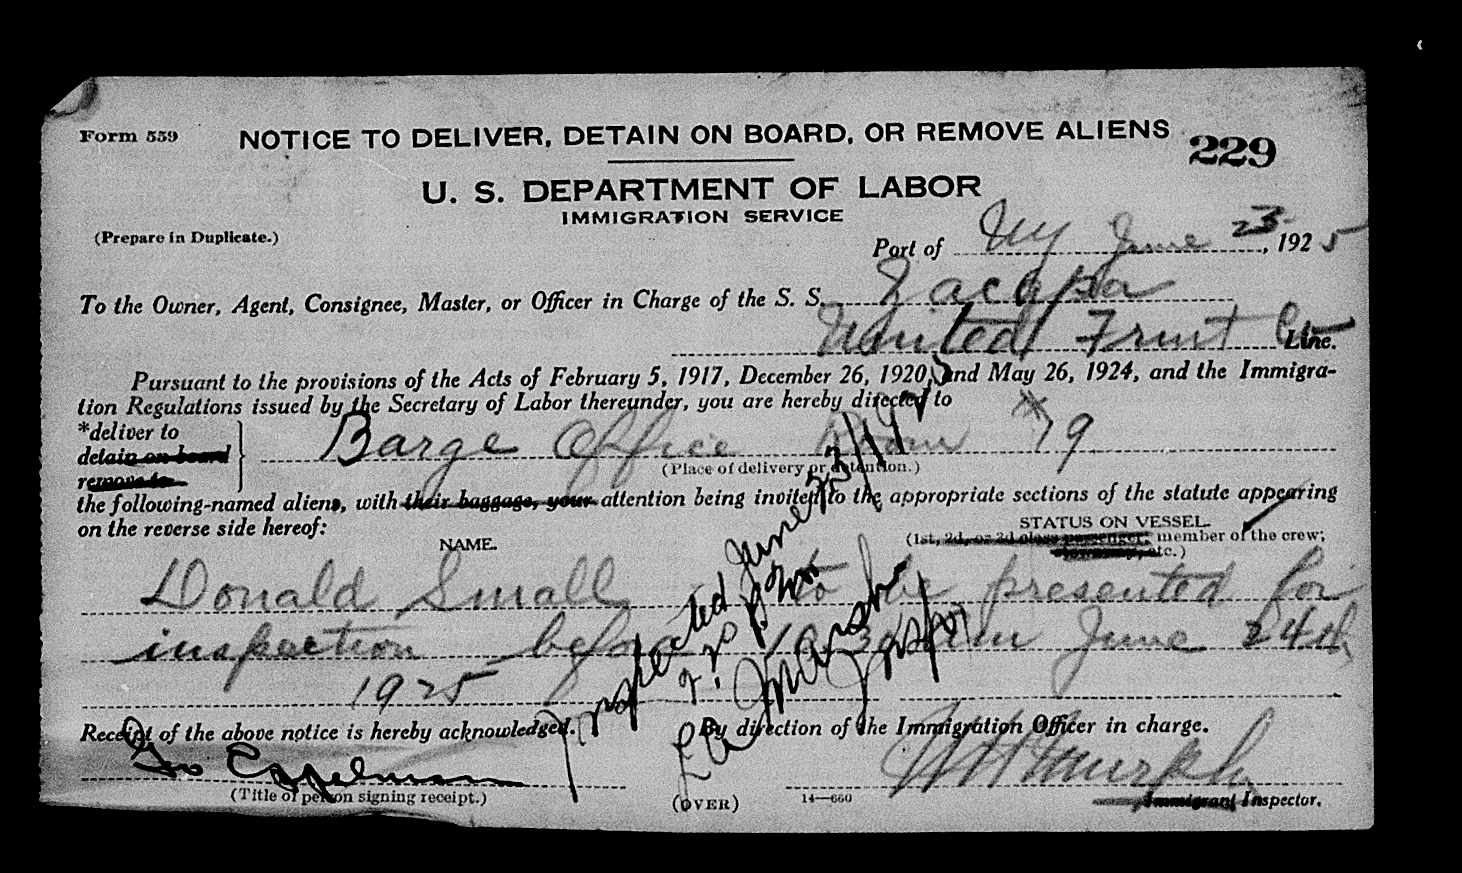 Form 559
NOTICE TO DELIVER, DETAIN ON BOARD, OR REMOVE ALIENS
229
U. S. DEPARTMENT OF LABOR
IMMIGRATION SERVICE
(Prepare in Duplicate.)
Port of NY June 23, 1925
To the Owner, Agent, Consignee, Master, or Officer in Charge of the S. S. Zacapa
United Fruit Co Line.
Pursuant to the provisions of the Acts of February 5, 1917, December 26, 1920, and May 26, 1924, and the Immigra-
tion Regulations issued by the Secretary of Labor thereunder, you are hereby directed to
*deliver to
detain on board
remove to
Barge Office Room 19
(Place of delivery or detention.)
the following-named aliens, with their baggage, your attention being invited to the appropriate sections of the statute appearing
on the reverse side hereof:
STATUS ON VESSEL.
NAME.
(1st, 2d, or 3d class passenger, member of the crew, etc.)
Donald Small to be presented for
inspection before 10.30 am June 24th
1925
Inspected June 23/
Receipt of the above notice is hereby acknowledged.
By direction of the Immigration Officer in charge.
Eppelman
W H Murphy
(Title of person signing receipt.)
(OVER)
14—660
Immigrant Inspector.